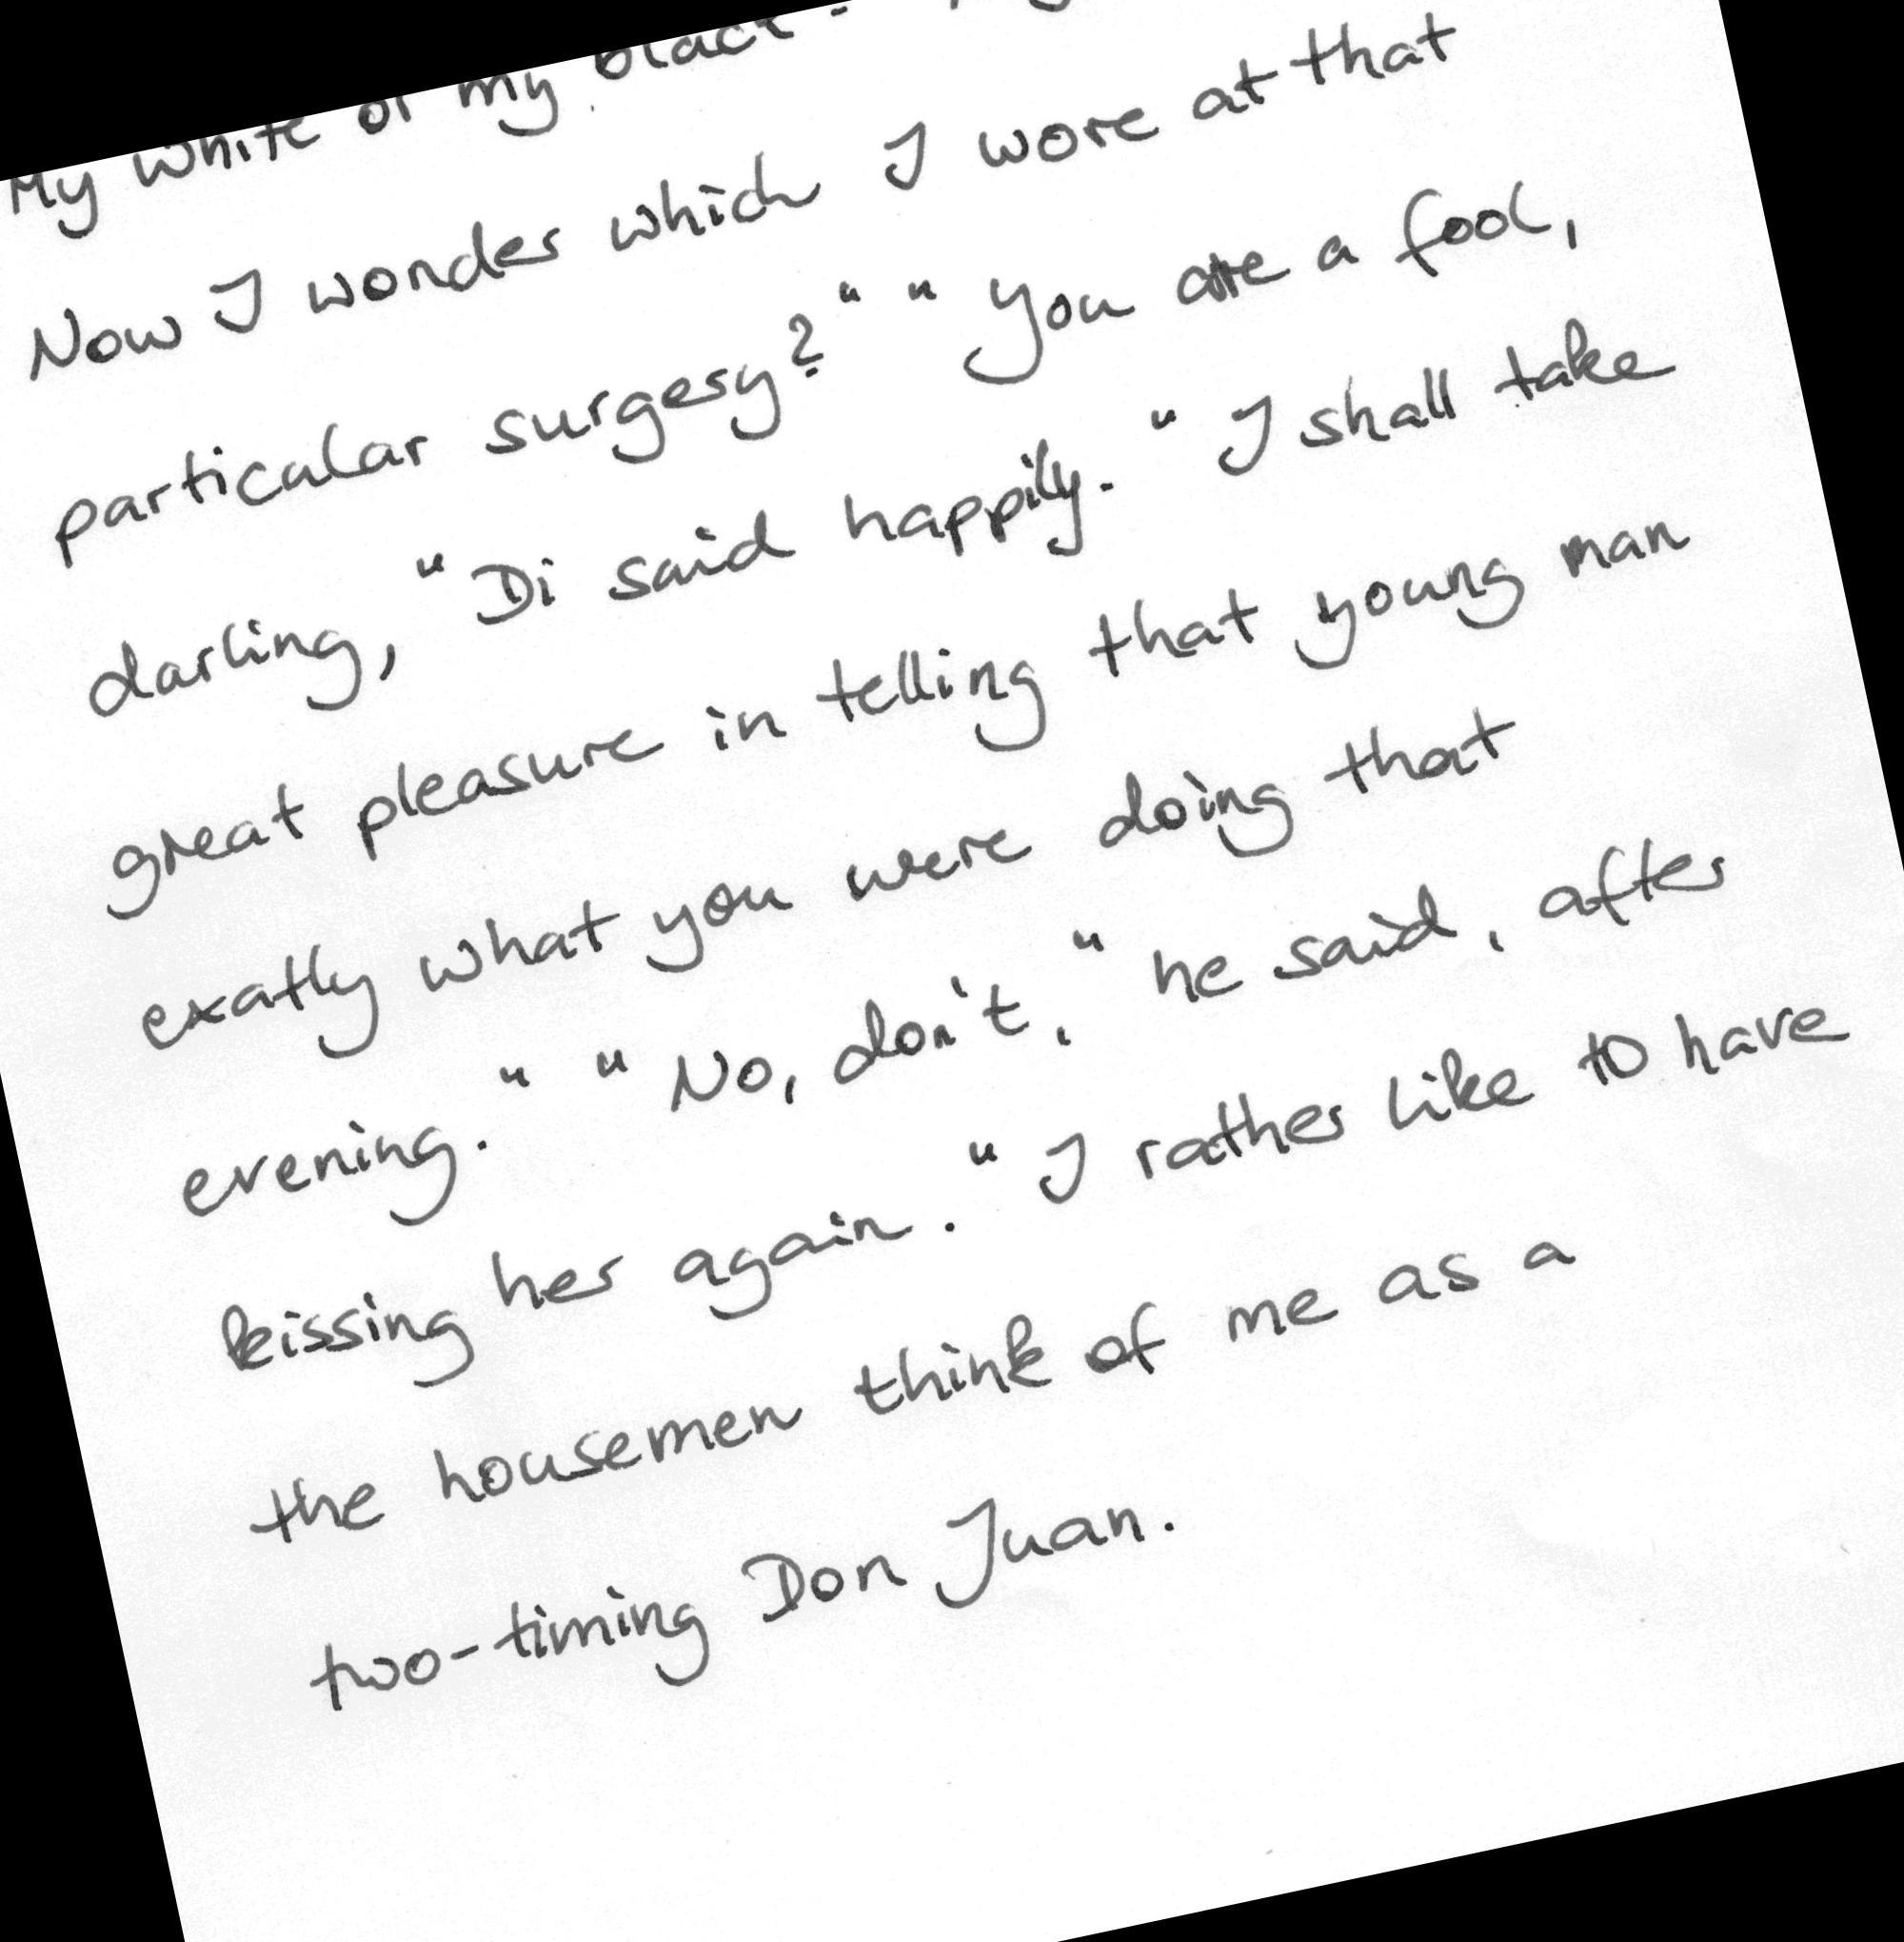 My white or my black
Now I wonder which I wore at that
particular surgery?" "You are a fool,
darling, "Di said happily. "I shall take
great pleasure in telling that young man
exatly what you were doing that
evening." "No, don't," he said, after
kissing her again. "I rather like to have
the housemen think of me as a
two-timing Don Juan.